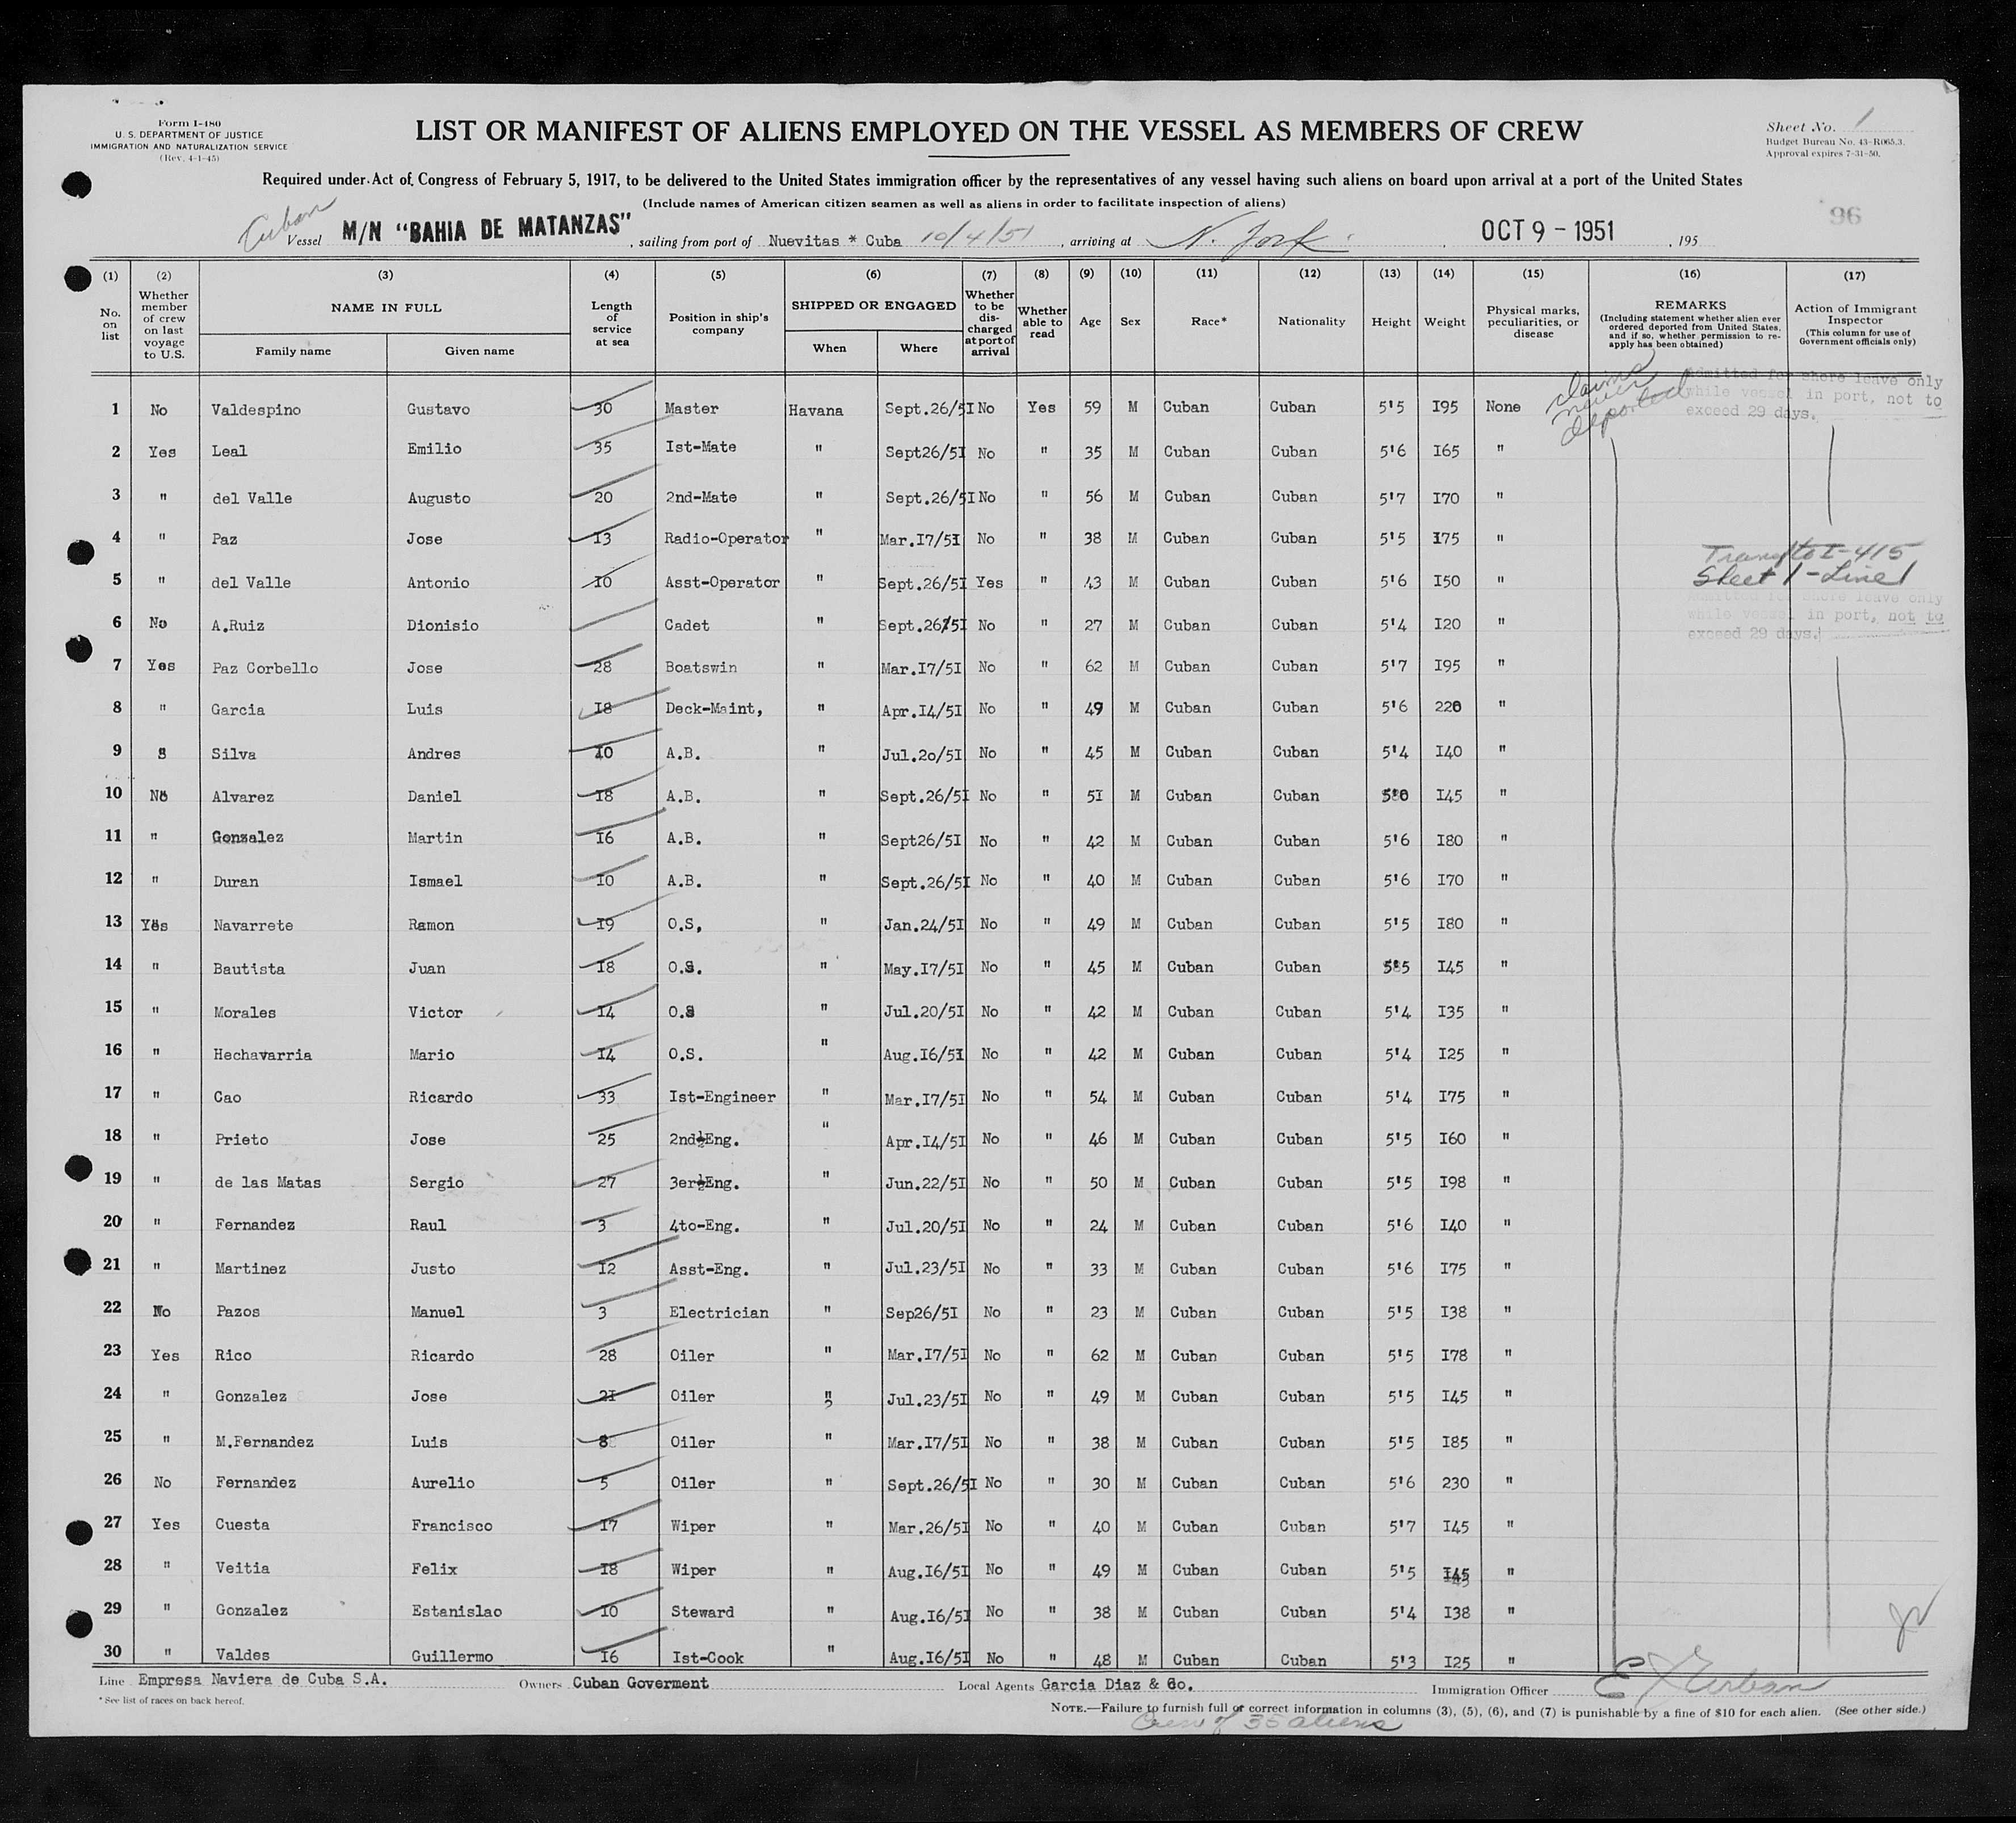 Form I-480
U. S. DEPARTMENT OF JUSTICE
IMMIGRATION AND NATURALIZATION SERVICE
(Rev. 4-1-45)
LIST OR MANIFEST OF ALIENS EMPLOYED ON THE VESSEL AS MEMBERS OF CREW
Sheet No. 1
Budget Bureau No. 43-R065.3.
Approval expires 7-31-50.
Required under Act of Congress of February 5, 1917, to be delivered to the United States immigration officer by the representatives of any vessel having such aliens on board upon arrival at a port of the United States
(Include names of American citizen seamen as well as aliens in order to facilitate inspection of aliens)
96
Cuban
Vessel M/N "BAHIA DE MATANZAS", sailing from port of Nuevitas * Cuba 10/4/51, arriving at N. York, OCT 9 - 1951, 195
(1) (2) (3) (4) (5) (6) (7) (8) (9) (10) (11) (12) (13) (14) (15) (16) (17)
No. on list
Whether member of crew on last voyage to U.S.
NAME IN FULL
Family name Given name
Length of service at sea
Position in ship's company
SHIPPED OR ENGAGED
When Where
Whether to be discharged at port of arrival
Whether able to read
Age
Sex
Race*
Nationality
Height
Weight
Physical marks, peculiarities, or disease
REMARKS
(Including statement whether alien ever ordered deported from United States, and if so, whether permission to re-apply has been obtained)
Action of Immigrant Inspector
(This column for use of Government officials only)
claims never deported
Admitted for shore leave only
while vessel in port, not to
exceed 29 days.
1 No Valdespino Gustavo 30 Master Havana Sept.26/5I No Yes 59 M Cuban Cuban 5'5 I95 None
2 Yes Leal Emilio 35 Ist-Mate " Sept26/5I No " 35 M Cuban Cuban 5'6 I65 "
3 " del Valle Augusto 20 2nd-Mate " Sept.26/5I No " 56 M Cuban Cuban 5'7 I70 "
4 " Paz Jose I3 Radio-Operator " Mar.I7/5I No " 38 M Cuban Cuban 5'5 I75 "
5 " del Valle Antonio I0 Asst-Operator " Sept.26/5I Yes " 43 M Cuban Cuban 5'6 I50 " Transf to I-415 Sheet 1-Line 1
Admitted for shore leave only
while vessel in port, not to
exceed 29 days.
6 No A.Ruiz Dionisio Cadet " Sept.26/5I No " 27 M Cuban Cuban 5'4 I20 "
7 Yes Paz Corbello Jose 28 Boatswin " Mar.I7/5I No " 62 M Cuban Cuban 5'7 I95 "
8 " Garcia Luis I8 Deck-Maint, " Apr.I4/5I No " 49 M Cuban Cuban 5'6 220 "
9 Silva Andres I0 A.B. " Jul.2o/5I No " 45 M Cuban Cuban 5'4 I40 "
10 No Alvarez Daniel I8 A.B. " Sept.26/5I No " 5I M Cuban Cuban I45 "
11 " Gonzalez Martin I6 A.B. " Sept26/5I No " 42 M Cuban Cuban 5'6 I80 "
12 " Duran Ismael I0 A.B. " Sept.26/5I No " 40 M Cuban Cuban 5'6 I70 "
13 Yes Navarrete Ramon I9 O.S, " Jan.24/5I No " 49 M Cuban Cuban 5'5 I80 "
14 " Bautista Juan I8 O.S. " May.I7/5I No " 45 M Cuban Cuban 5'5 I45 "
15 " Morales Victor I4 O.S " Jul.20/5I No " 42 M Cuban Cuban 5'4 I35 "
16 " Hechavarria Mario I4 O.S. " Aug.I6/5I No " 42 M Cuban Cuban 5'4 I25 "
17 " Cao Ricardo 33 Ist-Engineer " Mar.I7/5I No " 54 M Cuban Cuban 5'4 I75 "
18 " Prieto Jose 25 2nd-Eng. " Apr.I4/5I No " 46 M Cuban Cuban 5'5 I60 "
19 " de las Matas Sergio 27 3er-Eng. " Jun.22/5I No " 50 M Cuban Cuban 5'5 I98 "
20 " Fernandez Raul 3 4to-Eng. " Jul.20/5I No " 24 M Cuban Cuban 5'6 I40 "
21 " Martinez Justo I2 Asst-Eng. " Jul.23/5I No " 33 M Cuban Cuban 5'6 I75 "
22 No Pazos Manuel 3 Electrician " Sep26/5I No " 23 M Cuban Cuban 5'5 I38 "
23 Yes Rico Ricardo 28 Oiler " Mar.I7/5I No " 62 M Cuban Cuban 5'5 I78 "
24 " Gonzalez Jose 2I Oiler " Jul.23/5I No " 49 M Cuban Cuban 5'5 I45 "
25 " M.Fernandez Luis 8 Oiler " Mar.I7/5I No " 38 M Cuban Cuban 5'5 I85 "
26 No Fernandez Aurelio 5 Oiler " Sept.26/5I No " 30 M Cuban Cuban 5'6 230 "
27 Yes Cuesta Francisco I7 Wiper " Mar.26/5I No " 40 M Cuban Cuban 5'7 I45 "
28 " Veitia Felix I8 Wiper " Aug.I6/5I No " 49 M Cuban Cuban 5'5 I45 "
29 " Gonzalez Estanislao I0 Steward " Aug.I6/5I No " 38 M Cuban Cuban 5'4 I38 "
30 " Valdes Guillermo I6 Ist-Cook " Aug.I6/5I No " 48 M Cuban Cuban 5'3 I25 "
Line Empresa Naviera de Cuba S.A. Owners Cuban Goverment Local Agents Garcia Diaz & Co. Immigration Officer
* See list of races on back hereof.
NOTE.—Failure to furnish full or correct information in columns (3), (5), (6), and (7) is punishable by a fine of $10 for each alien. (See other side.)
Crew of 35 aliens